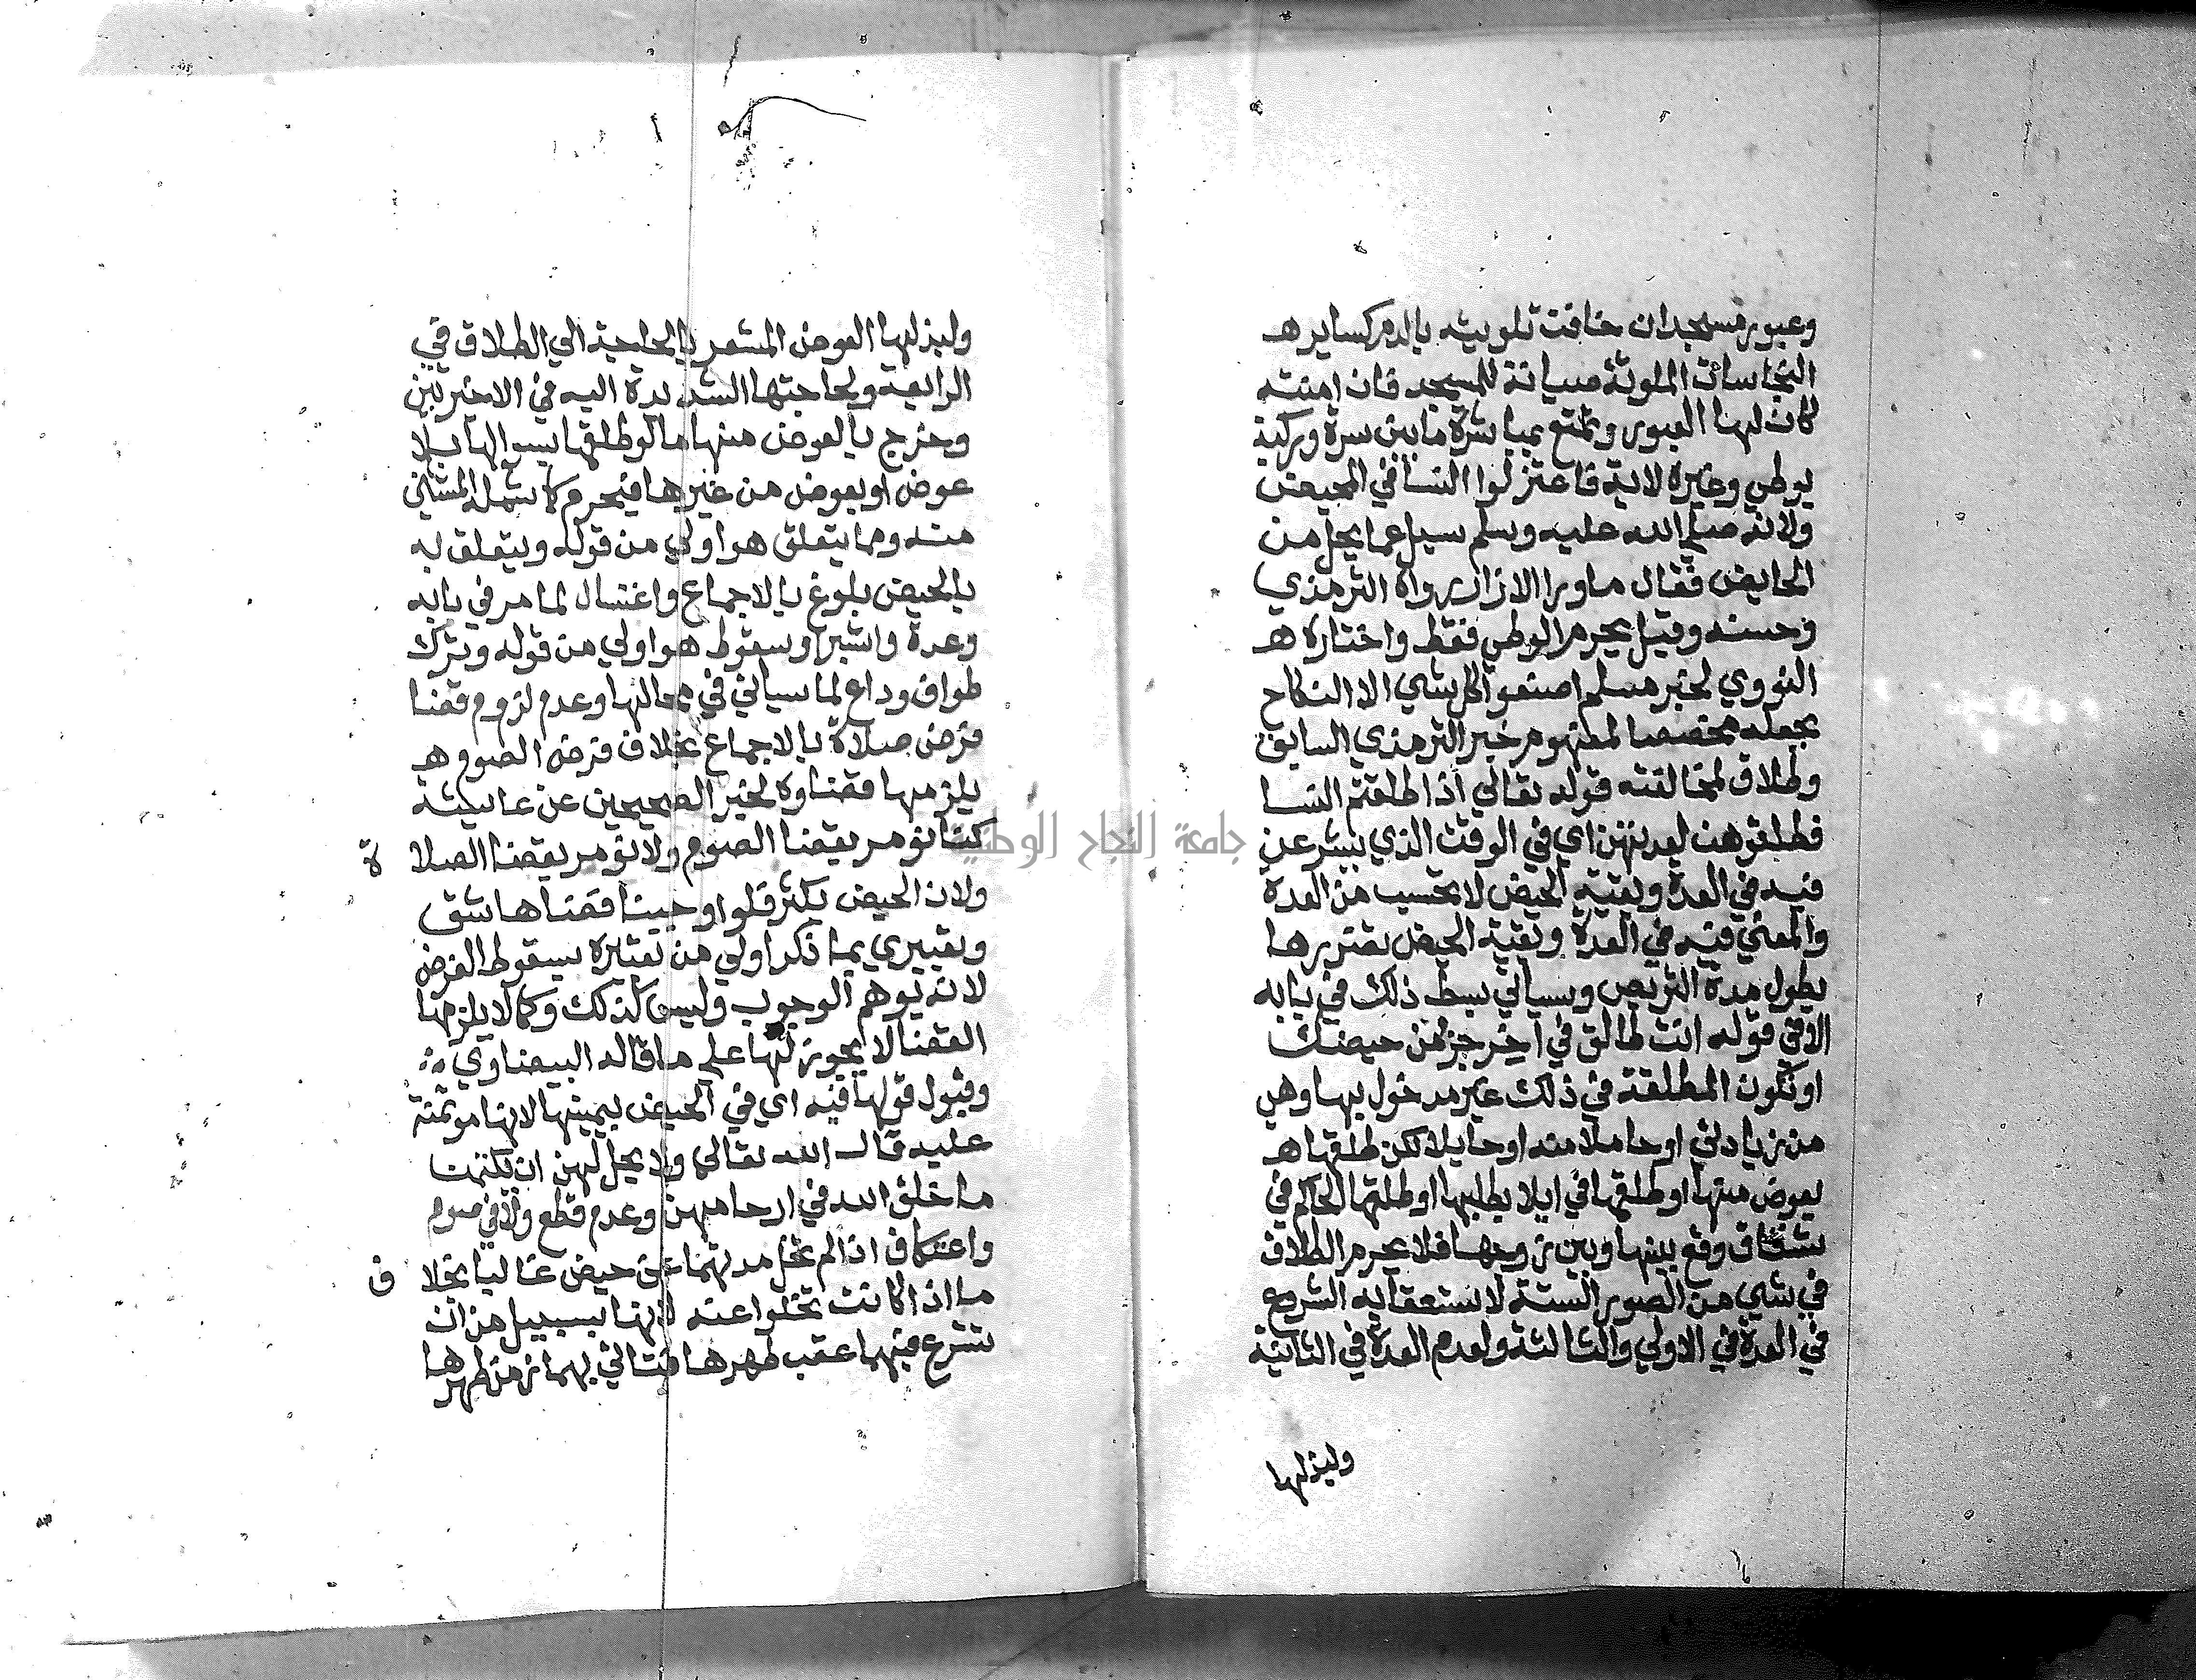 وعبور مسجد ان خافت تلويثه بالدم كساير هـ
النجاسات الملوثة صيانة للمسجد فان امنته
كان لها العبور وتمتع بمباشرة ما بين سرة وركبة
بوطي وغيره لاية فاعتزلوا النسا في المحيض
ولانه صلي الله عليه وسلم سيل عما يحل من
الحايض فقال ما ورا الازار رواه الترمذي
وحسنه وقيل يحرم الوطي فقط واختاره هـ
النووي لخبر مسلم اصنعوا كل شي الا النكاح
بجعله مخصصا لمفهوم خبر الترمذي السابق
وطلاق لمخالفته قوله تعالي اذا طلقتم النسا
فطلقوهن لعدتهن اي في الوقت الذي يشرعن
فيه في العدة وبقية الحيض لا تحسب من العدة
والمعني فيه في العدة وبقية الحيض تضررها
بطول مدة التربص وسياتي بسط ذلك في بابه
الا في قوله انت طالق في اخر جز من حيضك
او تكون المطلقة في ذلك غير مدخول بها وهي
من زيادتي او حاملا منه او حايلا لكن طلقها هـ
بعوض منها او طلقها في ايلا بطلبها او طلقها الحاكم في
شقاق وقع بينها وبين زوجها فلا يحرم الطلاق
في شي من الصور الستة لاستعقابه الشروع
في العدة في الاولي والثالثة ولعدم العدة في الثانية
وليذلها
وليذلها العوض المشعر بالحاجة الي الطلاق في
الرابعة ولحاجتها الشديدة اليه في الاخيرتين
وخرج بالعوض منها ما لو طلقها بسوالها بلا
عوض او بعوض من غيرها فيحرم كما شمله المستثني
منه وما يتعلق هو اولي من قوله ويتعلق به
بالحيض بلوغ بالاجماع واغتسال لما مر في بابه
وعدة واستبرا وسقوط هو اولي من قوله وترك
طواف وداع لما سياتي في محالها وعدم لزوم قضا
فرض صلاة بالاجماع بخلاف فرض الصوم هـ
يلزمها قضاوه لخبر الصحيحين عن عايشة
كنا نومر بقضا الصوم ولا نومر بقضا الصلاة
ولان الحيض يكثر فلو اوجبنا قضاها شق
وتعبيري بما ذكر اولي من تعبيره بسقوط الفرض
لانه يوهم الوجوب وليس كذلك وكما لا يلزمها
القضا لا يجوز لها علي ما قاله البيضاوي
وقبول قولها فيه اي في الحيض بيمينها لانها موتمنة
عليه قال الله تعالي ولا يحل لهن ان يكتمن
ما خلق الله في ارحامهن وعدم قطع ولا في صوم
واعتكاف اذا لم تخل مدتهما عن حيض غالبا بخلاف
ما اذا كانت تخلوا عنه لانها بسبيل من ان
تشرع فيهما عقب طهرها فتاتي بهما زمن طهرها
جامعة النجاح الوطنية